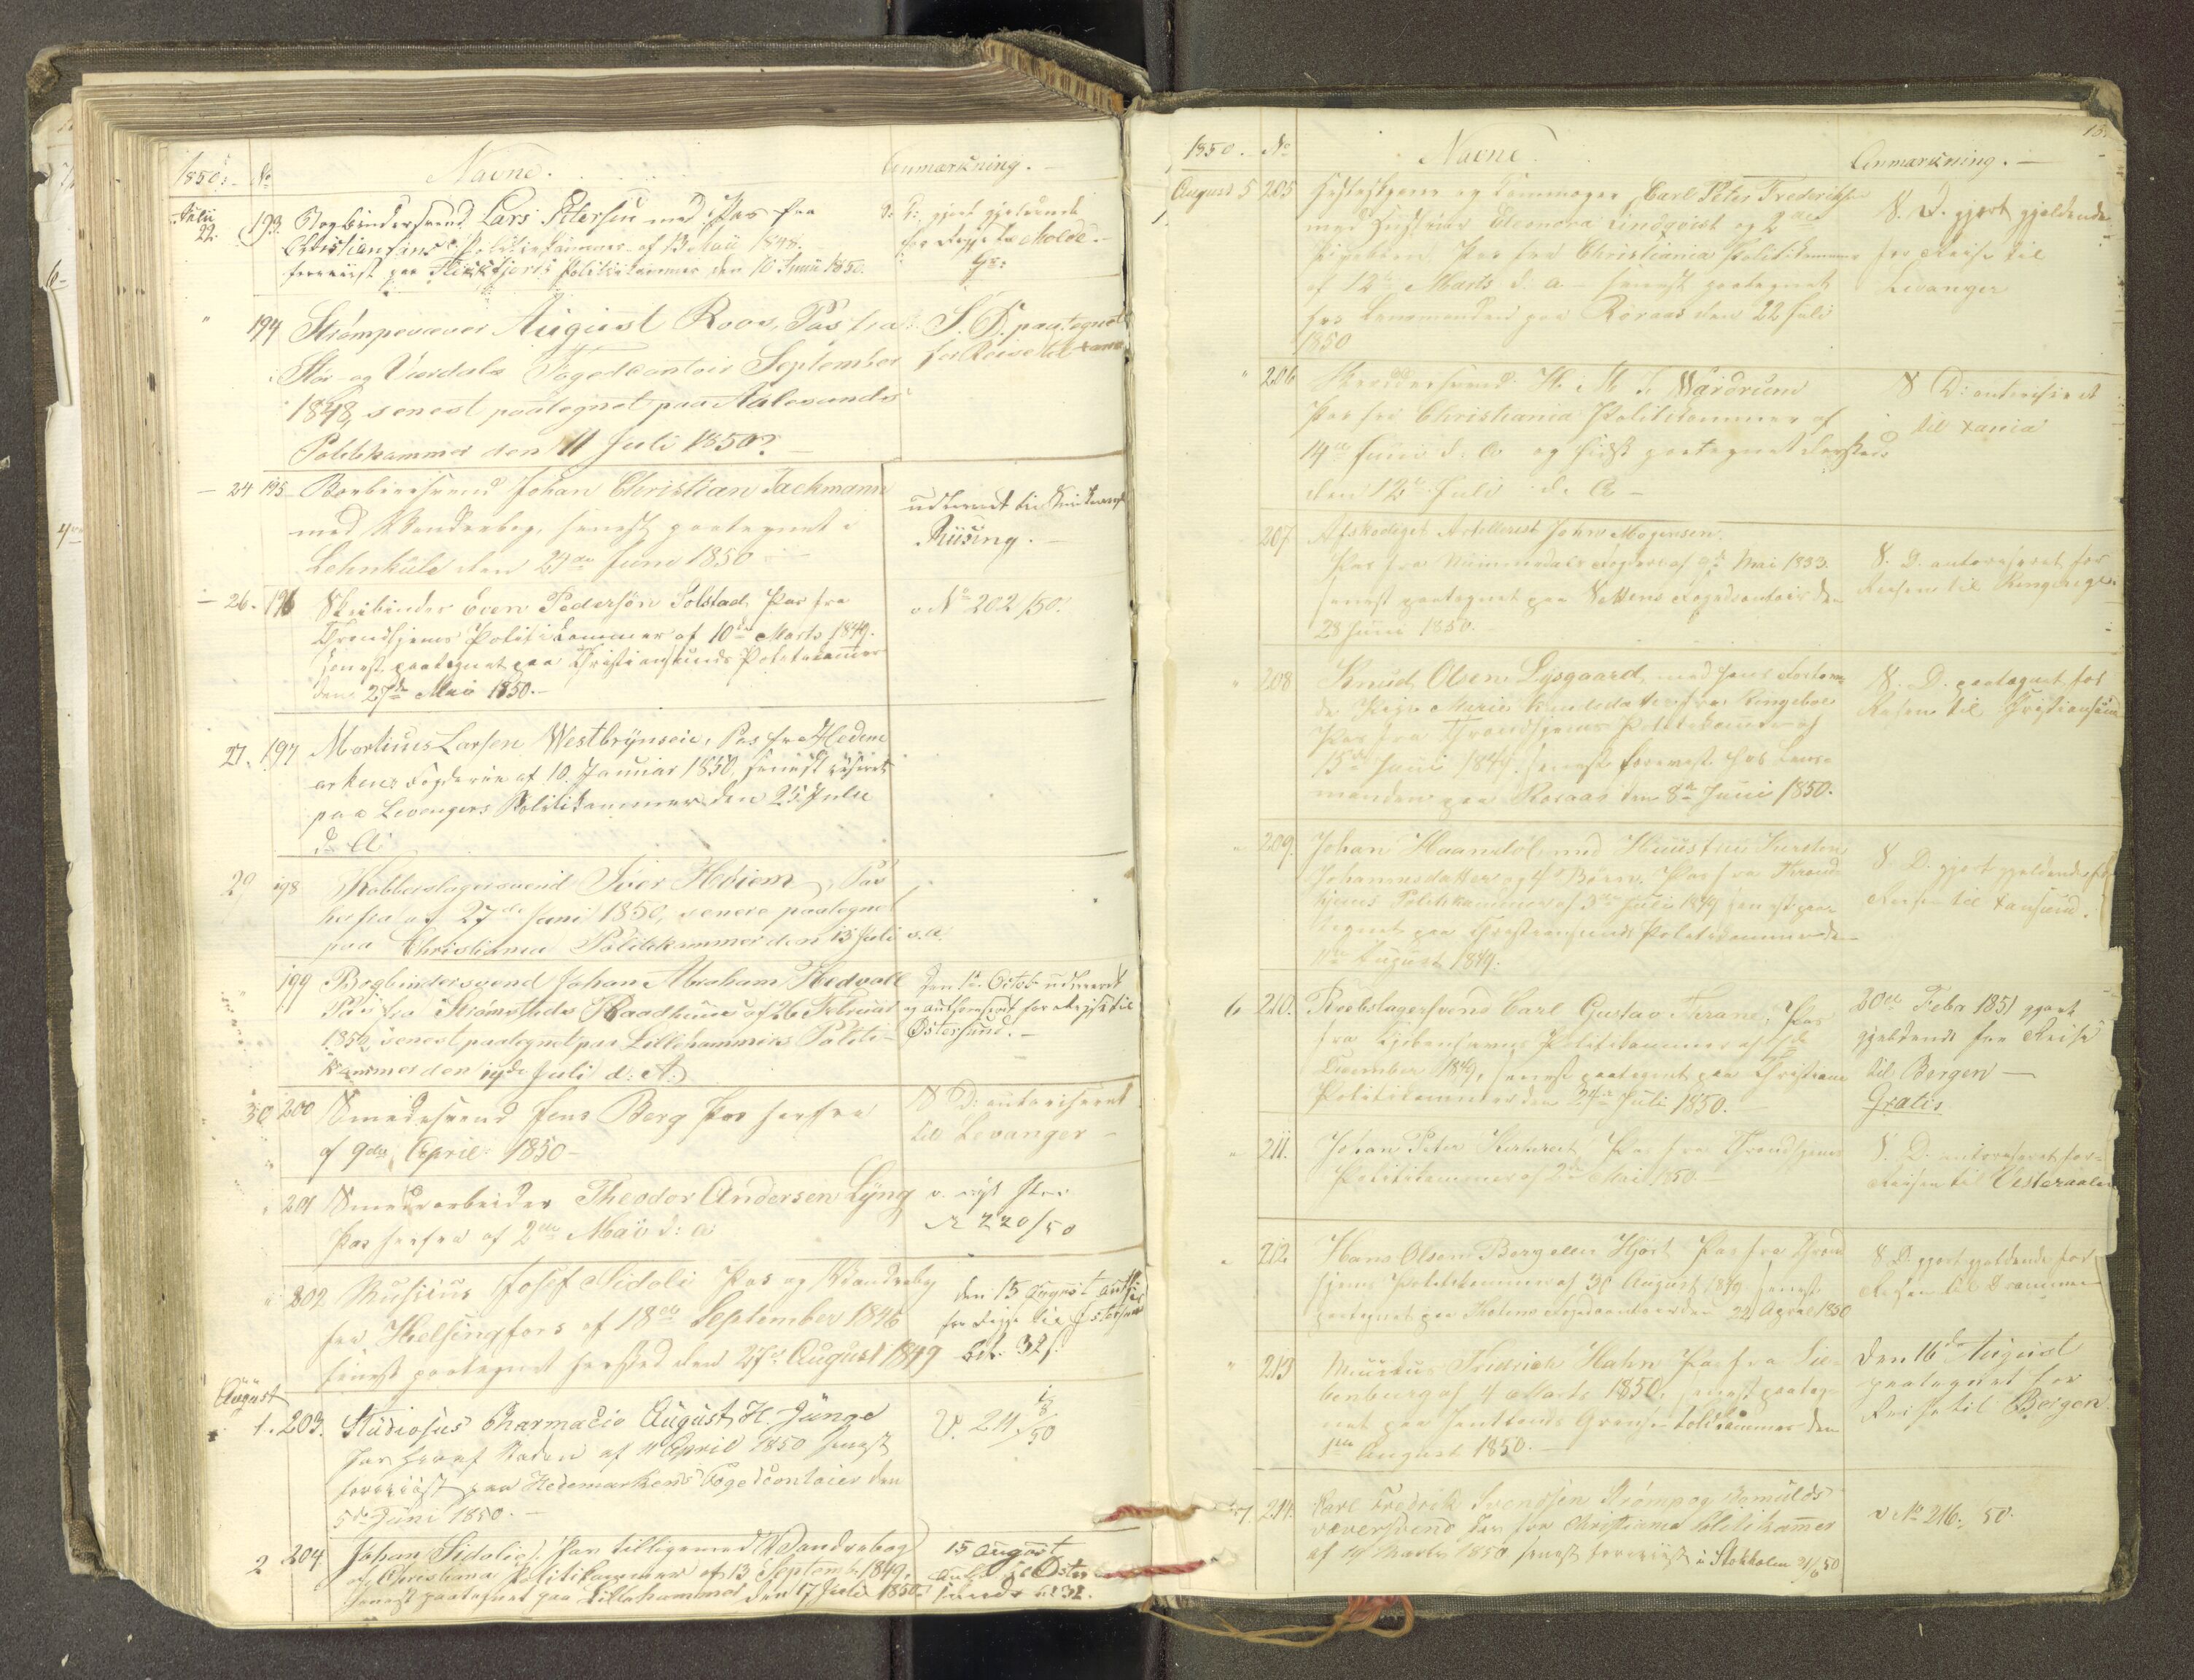 1850. No Navne. Anmærkning.
Julii
22. 193. Bogbindersvend Lars Petersen med Pas fra
Christiansands Politiekammer af 13 Maii 1848.
foreviist paa Flekkefjords Politikammer den 10 Junii 1850.
S. D. gjort gjeldende
for Reise til Molde.
" 194 Strømpevæver August Roos, Pas fra
Stør- og Værdals Fogedcontoir September
1848, senest paategnet paa Aalesunds
Politikammer den 11 Juli 1850.
S. D. paategnet
for Reise til
24 195 Barbeersvend Johan Christian Jackmann
med Vandrebog, senest paategnet i
den 24de Juni 1850
udleveret til
Rüsing.
26. 196 Skibinder Even Pedersøn Solstad, Pas fra
Trondhjems Politikammer af 10de Marts 1849.
senest paategnet paa Christiansunds Politikammer
den 27de Mai 1850.
v No 202/50.
27. 197 Martinus Larsen Westbrynseie, Pas fra Hedem
arkens Fogderie af 10. Januar 1850, senest viseret
paa Levangers Politikammer den 25 Julii
d. A
29 198 Kobberslagersvend Iver Hediem, Pas
herfra af 27de Juni 1850, senere paategnet
paa Christiania Politikammer den 15 Juli d. A.
199 Bogbindersvend Johan Abraham Hedvall
Pas fra Strømstads Raadhuus af 26 Februar
1850, senest paategnet paa Lillehammers Politi-
kammer den 19de Juli d: A:
Den 1te Octob udleveret
og authoriseret for Reise til
Østersund.
30 200 Smedesvend Jens Berg Pas herfra
af 9de April 1850
S D: autoriseret
til Levanger
" 201 Smedearbeider Theodor Andersen Lyng
Pas herfra af 2den Mai d: A:
v. nyt Pas
No 220/50
" 202 Musicus Josef Sidoli Pas og Vandrebog
fra Helsingfors af 18de September 1846
senest paategnet hersted den 27de August 1849
den 15 August auth
for Reise til Østersund
bet. 32 s.
August
1. 203. Studiosus Pharmacie August H. Junge
Pas af Staden af 11 April 1850 senest
foreviist paa Hedemarkens Fogedcontoir den
5te Juni 1850.
V. 211/50
2 204 Johan Sidolie. Pas tilligemed Vandrebog
af Christiania Politikammer af 13 Septemb. 1849,
senest paategnet paa Lillehammer den 17 Juli 1850.
15 August
auth til Øster
sund bet 32.
1850. No Navne. Anmærkning.
August 5 205 og Kammager Carl Peter Frederiksen
med Hustrue Eleonora Lindqvist og 2de
Pigebørn Pas fra Christiania Politikammer
af 12te Marts d. A. senest paategnet
hos Lensmanden paa Røraas den 22 Juli
1850
S. D. gjort gjeldende
for Reise til
Levanger
" 206 Skræddersvend H. M. T. Wardrum
Pas fra Christiania Politikammer af
14de Juni d: A og sidst paategnet dersteds
den 12te Juli d: A
S D: autoriseret
til Xania
207. Afskediget Artillerist John Mogensen.
Pas fra Nummedals Fogderi af 9de Mai 1833.
senest paategnet paa Fogedcontoir den
28 Juni 1850.
S. D. autoriseret for
Reisen til Ringerige.
" 208 Knud Olsen Lysgaard, med hans
Marie Knudsdatter fra Ringeboe
Pas fra Trondhjems Politikammer af
15de Juni 1849. senest foreviist hos Lens-
manden paa Røraas den 8de Juni 1850.
S. D. paategnet for
Reisen til Christiansund
" 209. Johan Haandtøl med Huustru Kirsten
Johannesdatter og 4 Børn. Pas fra Trond-
hjems Politikammer af 3die Juli 1849 senest paa-
tegnet paa Christiansunds Politikammer den
11te August 1849.
S. D. gjort gjeldende for
Reisen til Xansund.
6 210. Rebslagersvend Carl Gustav Krane, Pas
fra Kjøbenhavns Politikammer af
December 1849, senest paategnet paa Christiania
Politikammer den 24de Juli 1850.
20de Febr 1851 gjort
gjeldende for Reise
til Bergen
Gratis
" 211. Johan Peter Pas fra Trondhjems
Politikammer af 2den Mai 1850.
S. D. autoriseret for
Reisen til Vesteraalen
" 212 Hans Olsen Berg eller Hjort Pas fra Trond
hjems Politikammer af 31 August 1849 senest
paategnet paa Fogedcontoir den 22 April 1850
S. D. gjort gjeldende for
Reisen til Drammen
" 213 Musicus Fredrich Hahn Pas fra
af 4 Marts 1850, senest paateg-
net paa Jemtlands Grændse-Toldkammer den
1ste August 1850.
Den 16de August
paategnet for
Reise til Bergen.
7. 214. Carl Fredrik Svendsen Strømp og Bomulds
væversvend Pas fra Christiania Politikammer
af 19 Marts 1850 senest foreviist i Stokholm 21/6 50
v No 216, 50.